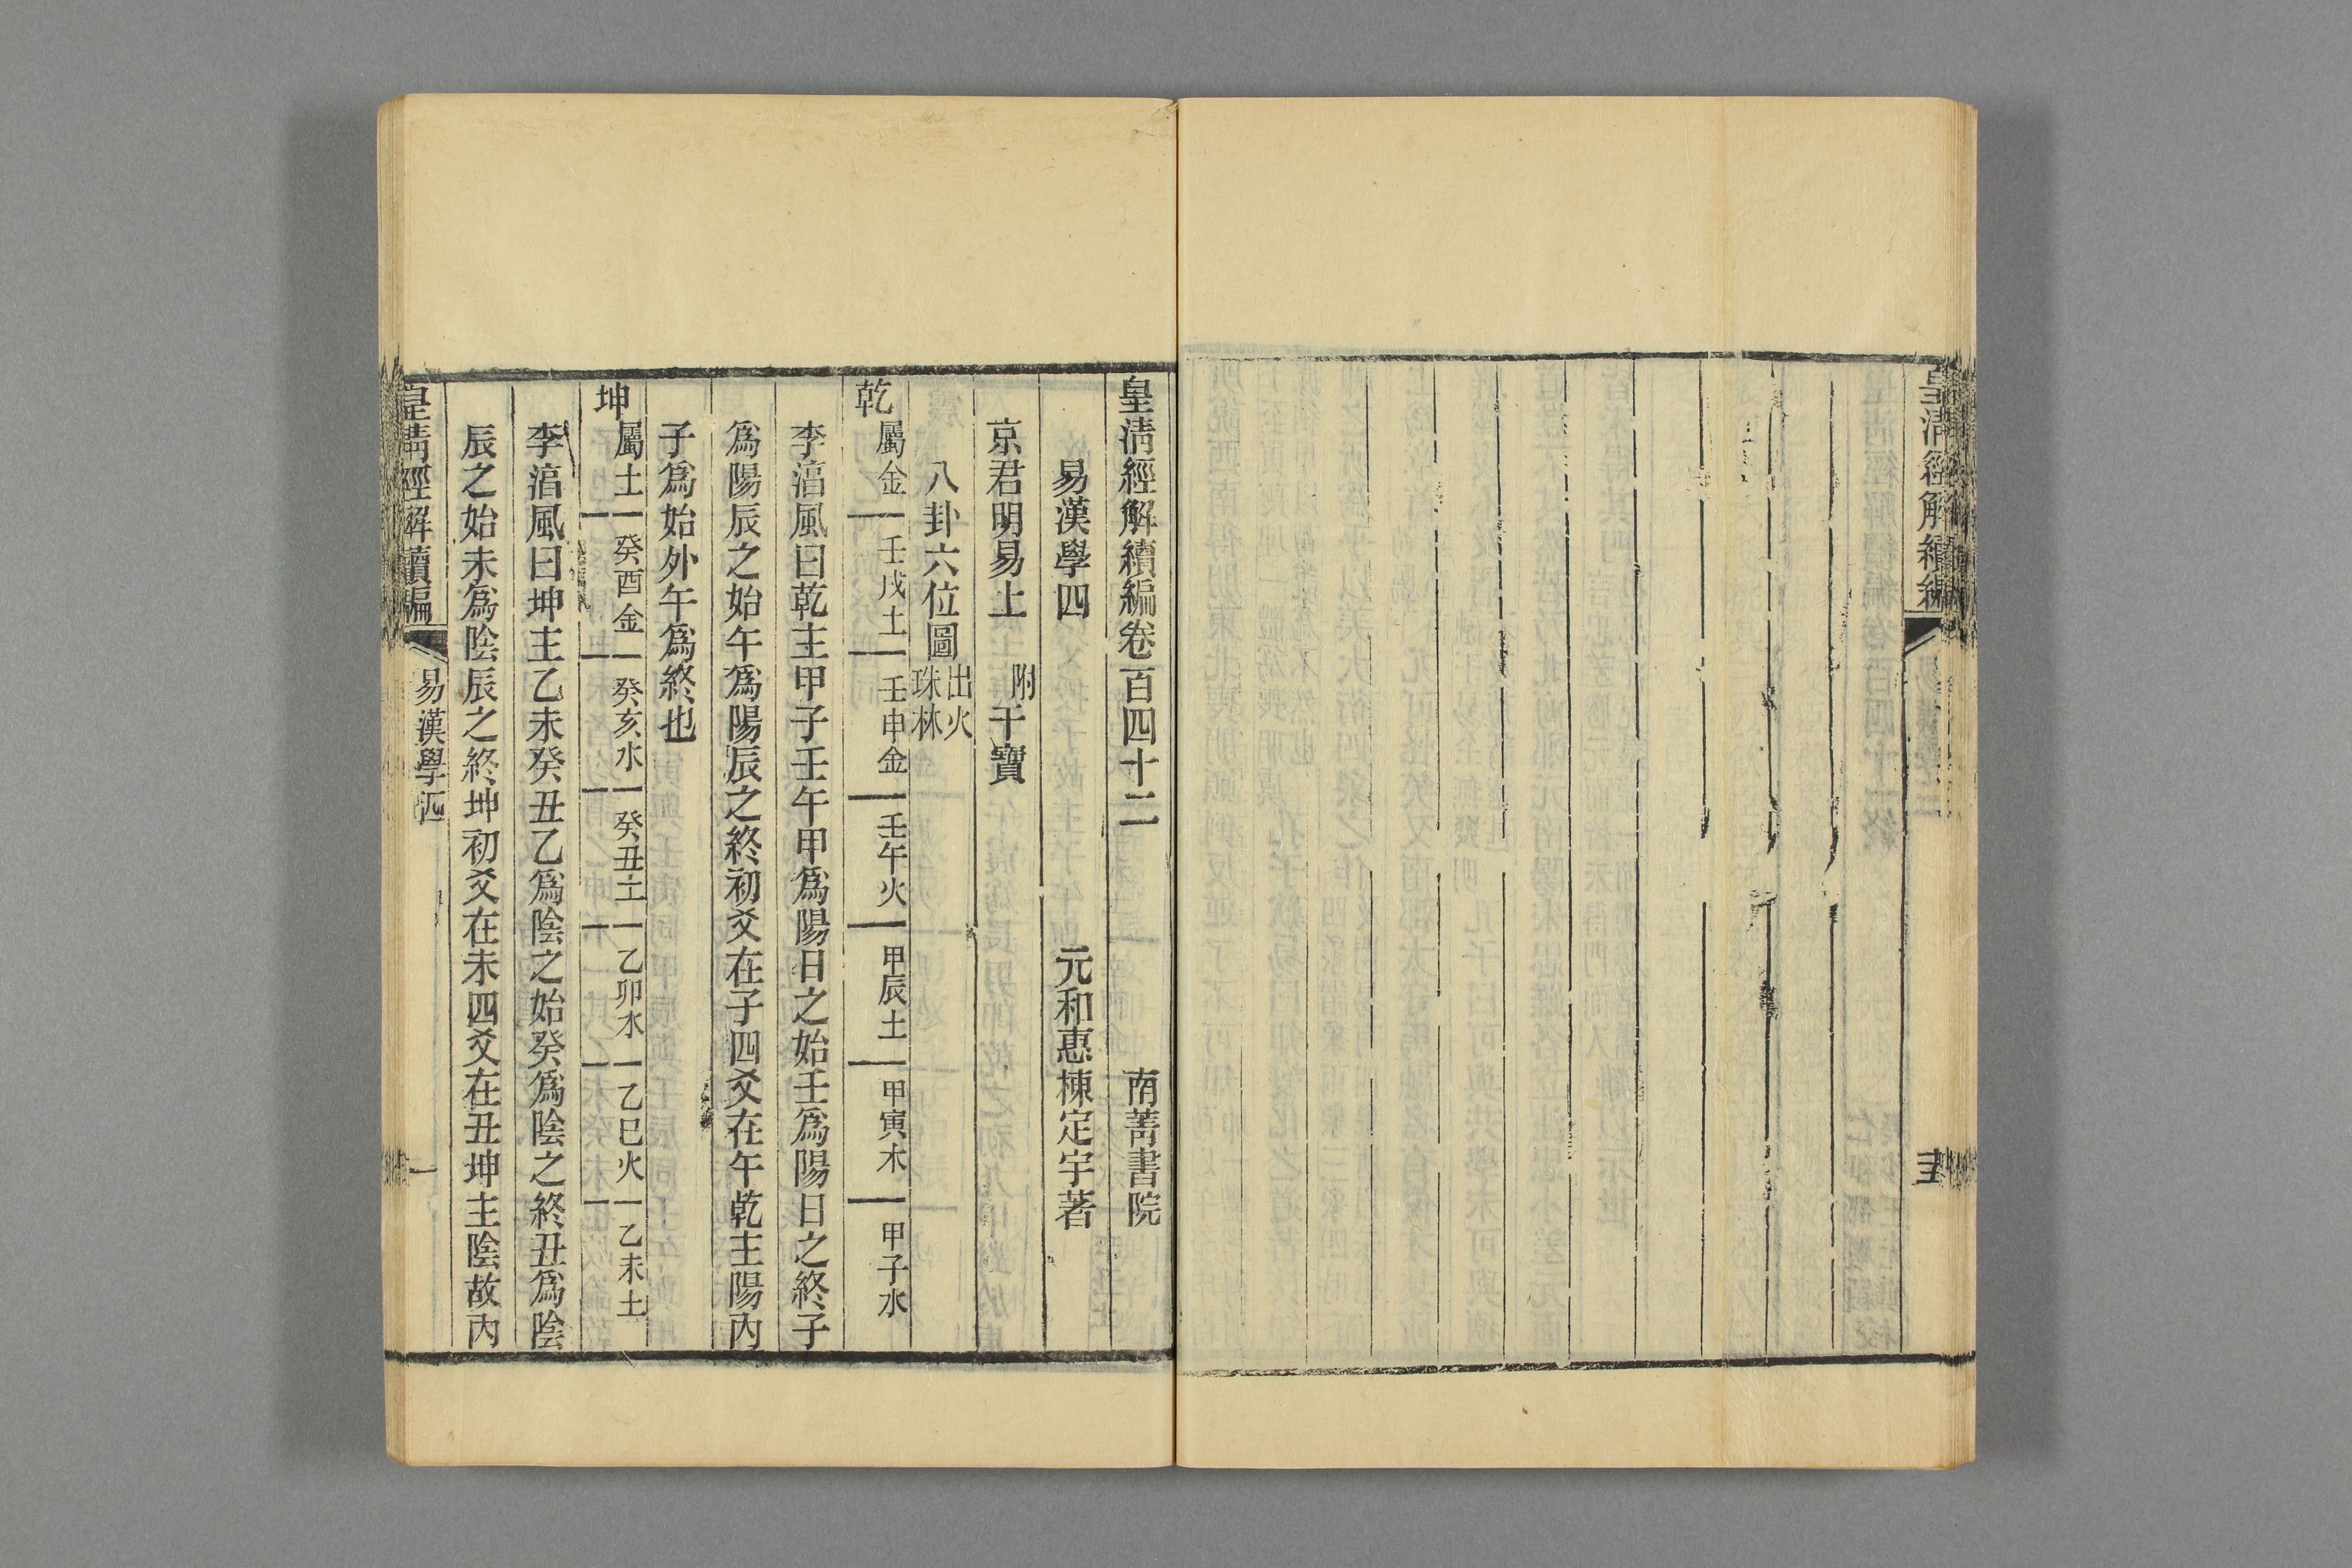 皇清經解續編
皇清經解續編卷百四十二 南菁書院
易漢學四 元和惠棟定宇著
京君明易上 附干寶
八卦六位圖 出火珠林
乾 屬金 壬戌土 壬申金 壬午火 甲辰土 甲寅木 甲子水
李湻風曰乾主甲子壬午甲爲陽日之始壬爲陽日之終子
爲陽辰之始午爲陽辰之終初爻在子四爻在午乾主陽內
子爲始外午爲終也
坤 屬土 癸酉金 癸亥水 癸丑土 乙卯木 乙巳火 乙未土
李湻風曰坤主乙未癸丑乙爲陰之始癸爲陰之終丑爲陰
辰之始未爲陰辰之終坤初爻在未四爻在丑坤主陰故內
皇清經解續編 易漢學四 一